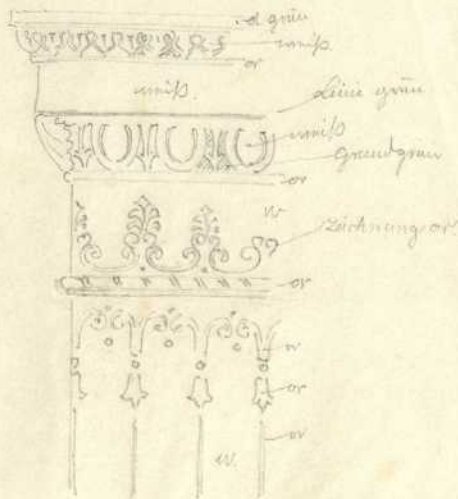 d grün
weiß.
or
weiß.
Linie grün
weiß
Grund grün
or
W
Zeichnung or.
or
or
or
or
W.